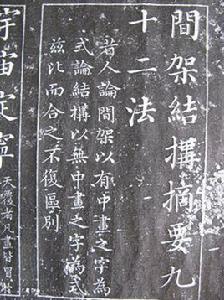 間架結構摘要九
十二法
昔人論間架以有中畫之字為
式論結構以無中畫之字為式
茲比而合之不復區別
宇宙定寧
天覆者凡畫皆冒於